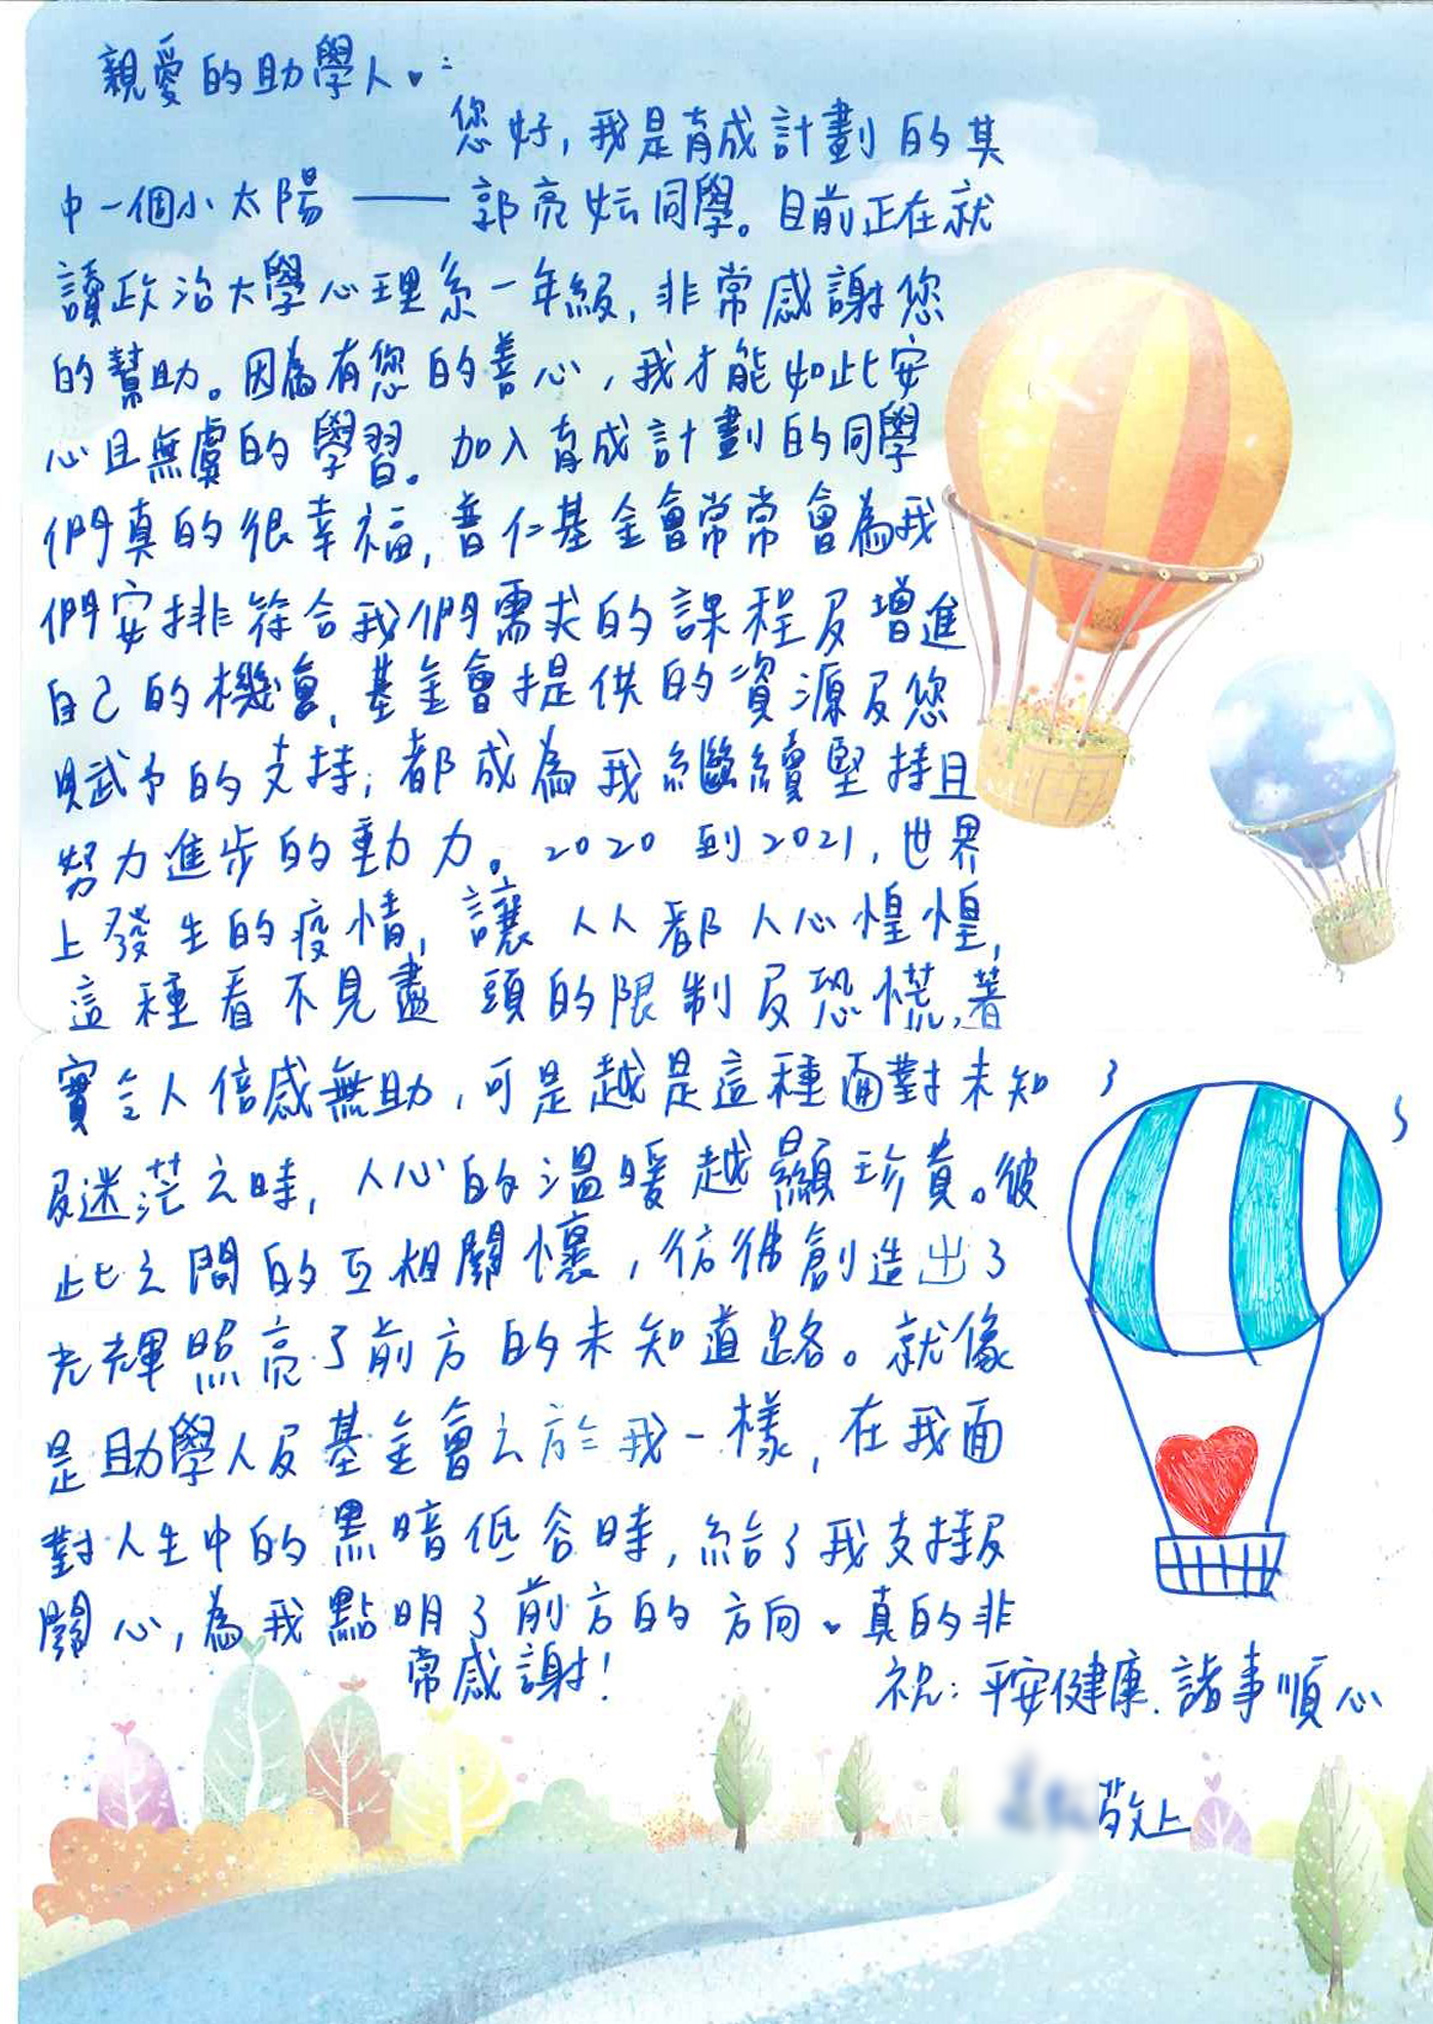 親愛的助學人♥：
您好，我是育成計劃的其
中一個小太陽——郭亮妘同學。目前正在就
讀政治大學心理系一年級，非常感謝您
的幫助。因為有您的善心，我才能如此安
心且無虞的學習。加入育成計劃的同學
們真的很幸福，普仁基金會常常會為我
們安排符合我們需求的課程及增進
自己的機會，基金會提供的資源及您
賦予的支持，都成為我繼續堅持且
努力進步的動力。2020到2021，世界
上發生的疫情，讓人人都人心惶惶，
這種看不見盡頭的限制及恐慌，著
實令人倍感無助，可是越是這種面對未知
及迷茫之時，人心的溫暖越顯珍貴。彼
此之間的互相關懷，彷彿創造出了
光輝照亮了前方的未知道路。就像
是助學人及基金會之於我一樣，在我面
對人生中的黑暗低谷時，給了我支持及
關心，為我點明了前方的方向。真的非
常感謝！
祝：平安健康、諸事順心
敬上